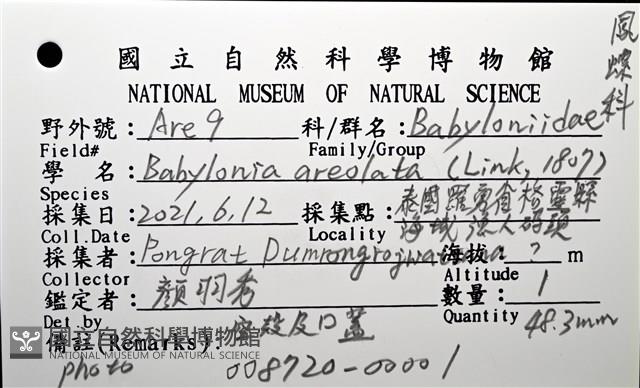 國立自然科學博物館
鳳螺科
NATIONAL MUSEUM OF NATURAL SCIENCE
野外號：Are 9 科/群名：Babyloniidae
Field# Family/Group
學 名：Babylonia areolata (Link, 1807)
Species
採集日：2021.6.12 採集點：泰國羅勇府格靈縣
海域 漁人碼頭
Coll.Date Locality
採集者：Pongrat Dumrongrojwattana 海拔：? m
Collector Altitude
鑑定者：顏羽秀 數量：1
Det.by Quantity 48.3mm
備註(Remarks): 空殼及口蓋
國立自然科學博物館
NATIONAL MUSEUM OF NATURAL SCIENCE
photo 008720-00001